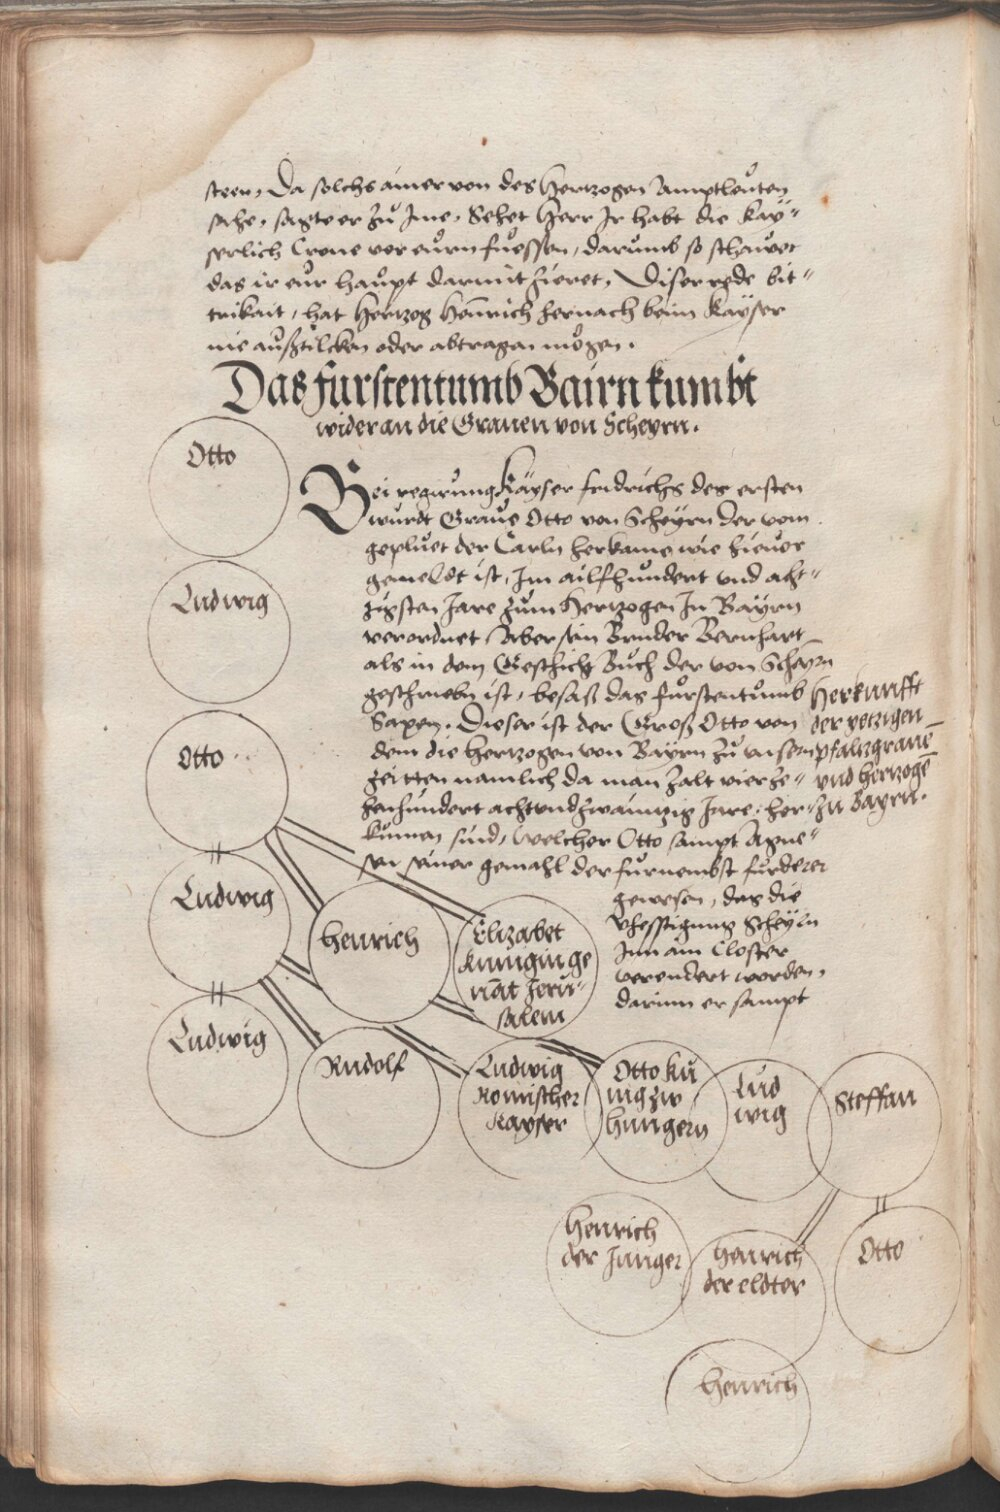 steen, Da solchs ainer von des Hertzogen Amptleuten
sahe, sagte er zu Ime, Sehet Herr Ir habt die kay-
serlich Crone vor eurn fuessen, darumb so schawet
das ir eur haupt darmit zieret, Diser rede bit-
trikait, hat Hertzog Hainrich hernach beim Kayser
nie ausstilcken oder abtragen mögen.
Das furstentumb Bairn kumbt
wider an die Grauen von Scheyrn.
Otto
Bei regirung Kayser fridrichs des ersten
wurdt Graue Otto von Scheyrn der vom
gepluet der Carln herkame wie hieuor
gemeldt ist, Im ailfhundert vnd acht-
zigsten Jare zum Hertzogen In Bayrn
verordnet, Aber sein Bruder Bernhart
als in dem Geschicht Buch der von Scheyrn
geschriebn ist, besass das furstentumb
Saxen. Dieser ist der Gross Otto von
dem die Hertzogen von Bayrn zu vnsern
zeitten namlich da man zalt vierze-
henhundert achtvndzwaintzig Jare, her-
kumen sind, Welcher Otto sampt Agne-
sen seiner gemahl der furnembst furderer
gewesen, das die
Vhesstigung Scheyrn
Inn ain Closter
verendert worden,
darinn er sampt
herkunfft
der yetzigen
pfaltzgraue
vnd hertzoge
zu Bayrn.
Ludwig
Otto
Ludwig
henrich
Elizabet
kunigin ge
nat Jeru-
salem
Ludwig
Rudolf
Ludwig
Romischer
Kayser
Otto ku
nig zw
hungern
Lud
wig
Steffan
henrich
der Junger
henrich
der eldter
Otto
henrich